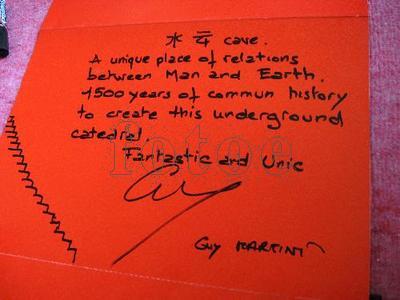 水 云 cave.
A unique place of relations
between Man and Earth.
1500 years of commun history
to create this underground
catedral
Fantastic and Unic
Guy MARTINI
fotoe